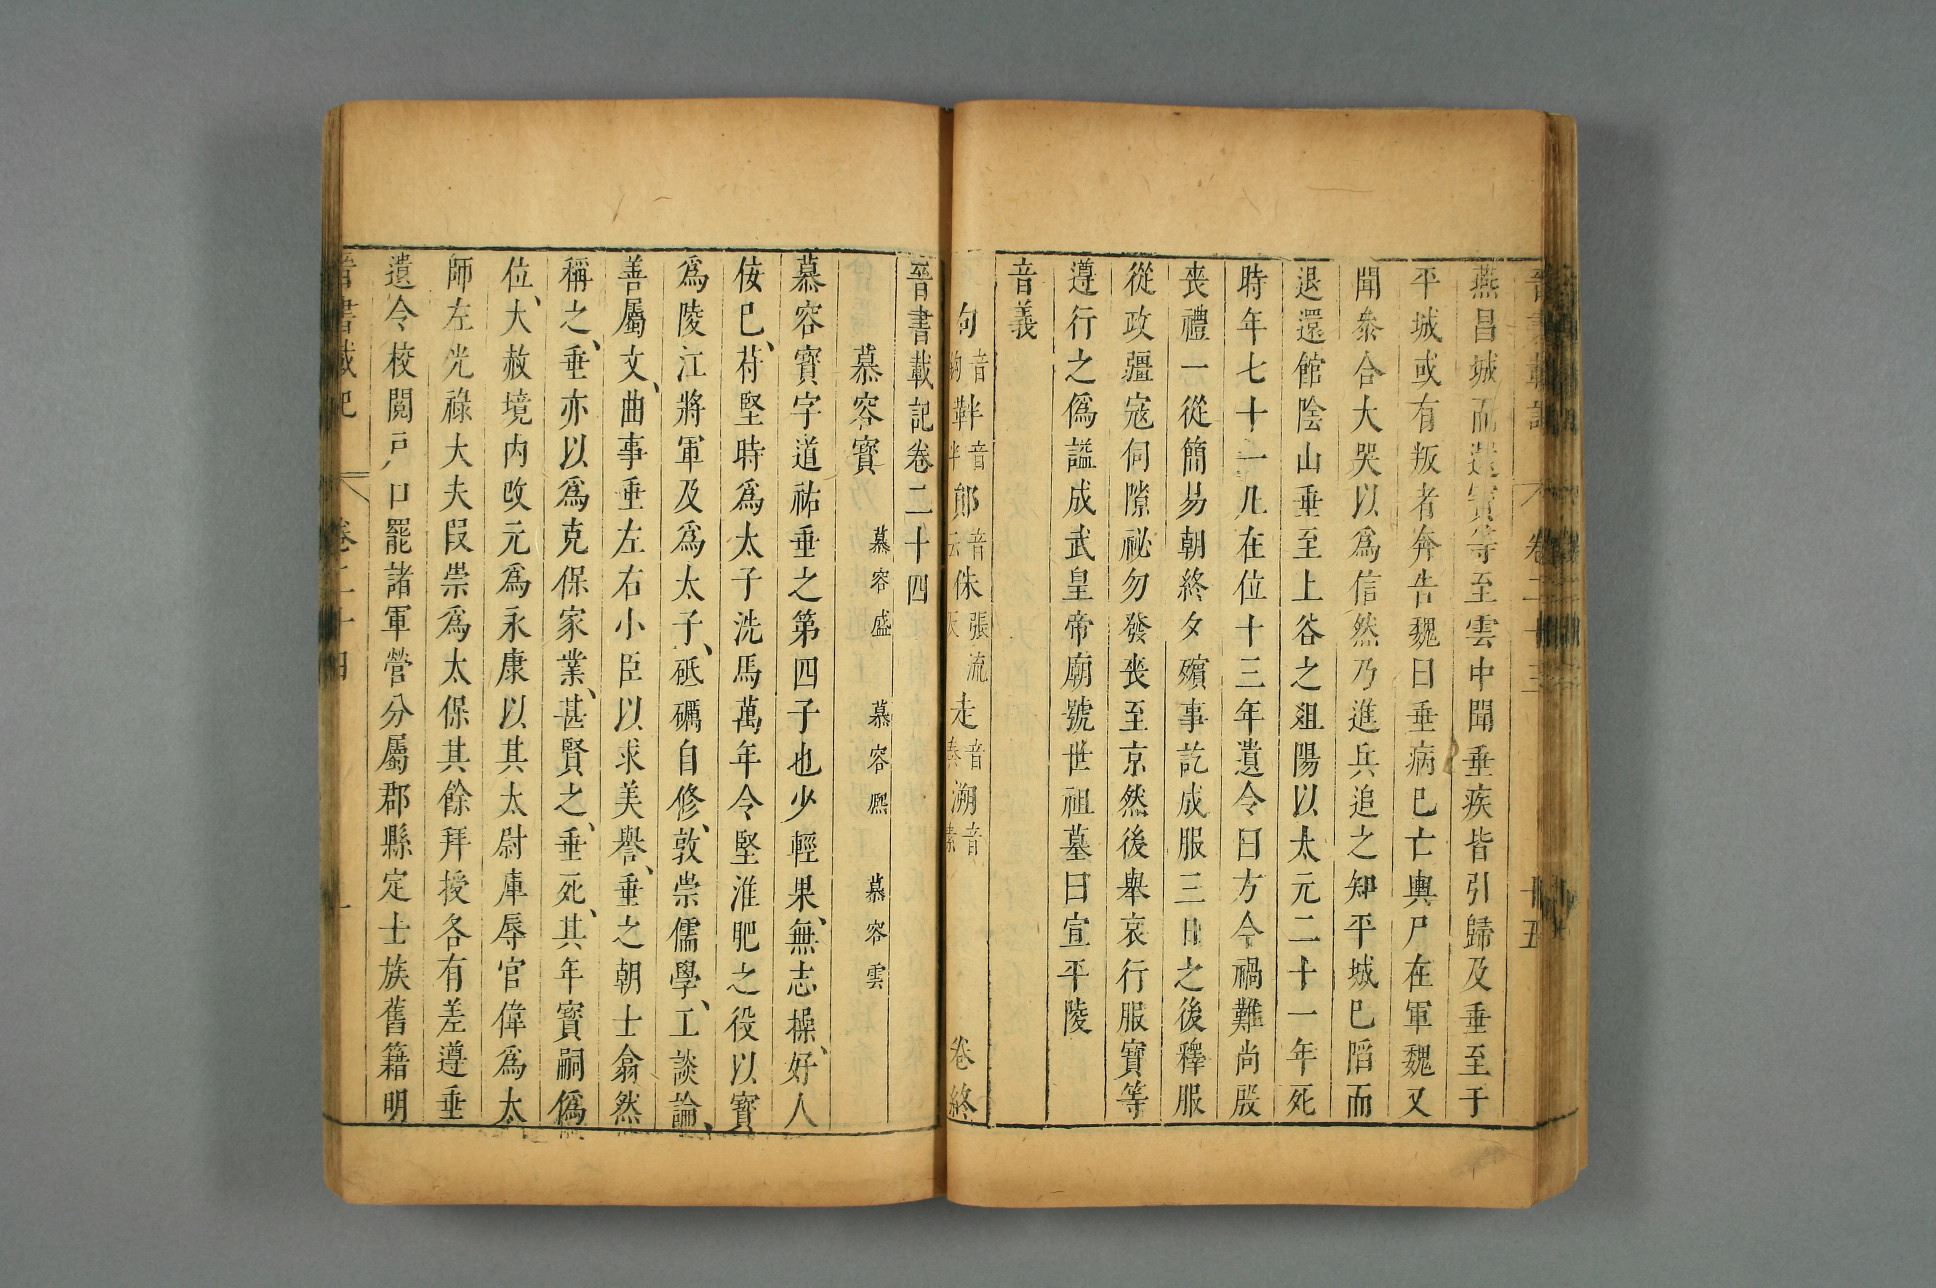 晉書載記 卷二十三 十五
燕昌城而還寶等至雲中聞垂疾皆引歸及垂至于
平城或有叛者奔告魏曰垂病已亡輿尸在軍魏又
聞叅合大哭以爲信然乃進兵追之知平城已䧟而
退還館陰山垂至上谷之沮陽以太元二十一年死
時年七十一凡在位十三年遺令曰方今禍難尚殷
喪禮一從簡易朝終夕殯事訖成服三日之後釋服
從政疆寇伺隙祕勿發喪至京然後舉哀行服寶等
遵行之僞謚成武皇帝廟號世祖墓曰宣平陵
音義
句音鉤 靽音半 䢵音云 侏張流反 走音奏 溯音素 卷終
晉書載記卷二十四
慕容寶 慕容盛 慕容熙 慕容雲
慕容寶字道祐垂之第四子也少輕果、無志操、好人
佞已、苻堅時爲太子洗馬萬年令堅淮肥之役以寶
爲陵江將軍及爲太子、砥礪自修、敦崇儒學、工談論、
善屬文、曲事垂左右小臣以求美譽、垂之朝士翕然
稱之、垂亦以爲克保家業、甚賢之、垂死、其年寶嗣僞
位、大赦境内改元爲永康以其太尉庫辱官偉爲太
師左光祿大夫段崇爲太保其餘拜授各有差遵垂
遺令校閱戸口罷諸軍營分屬郡縣定士族舊籍明
晉書載記 卷二十四 一